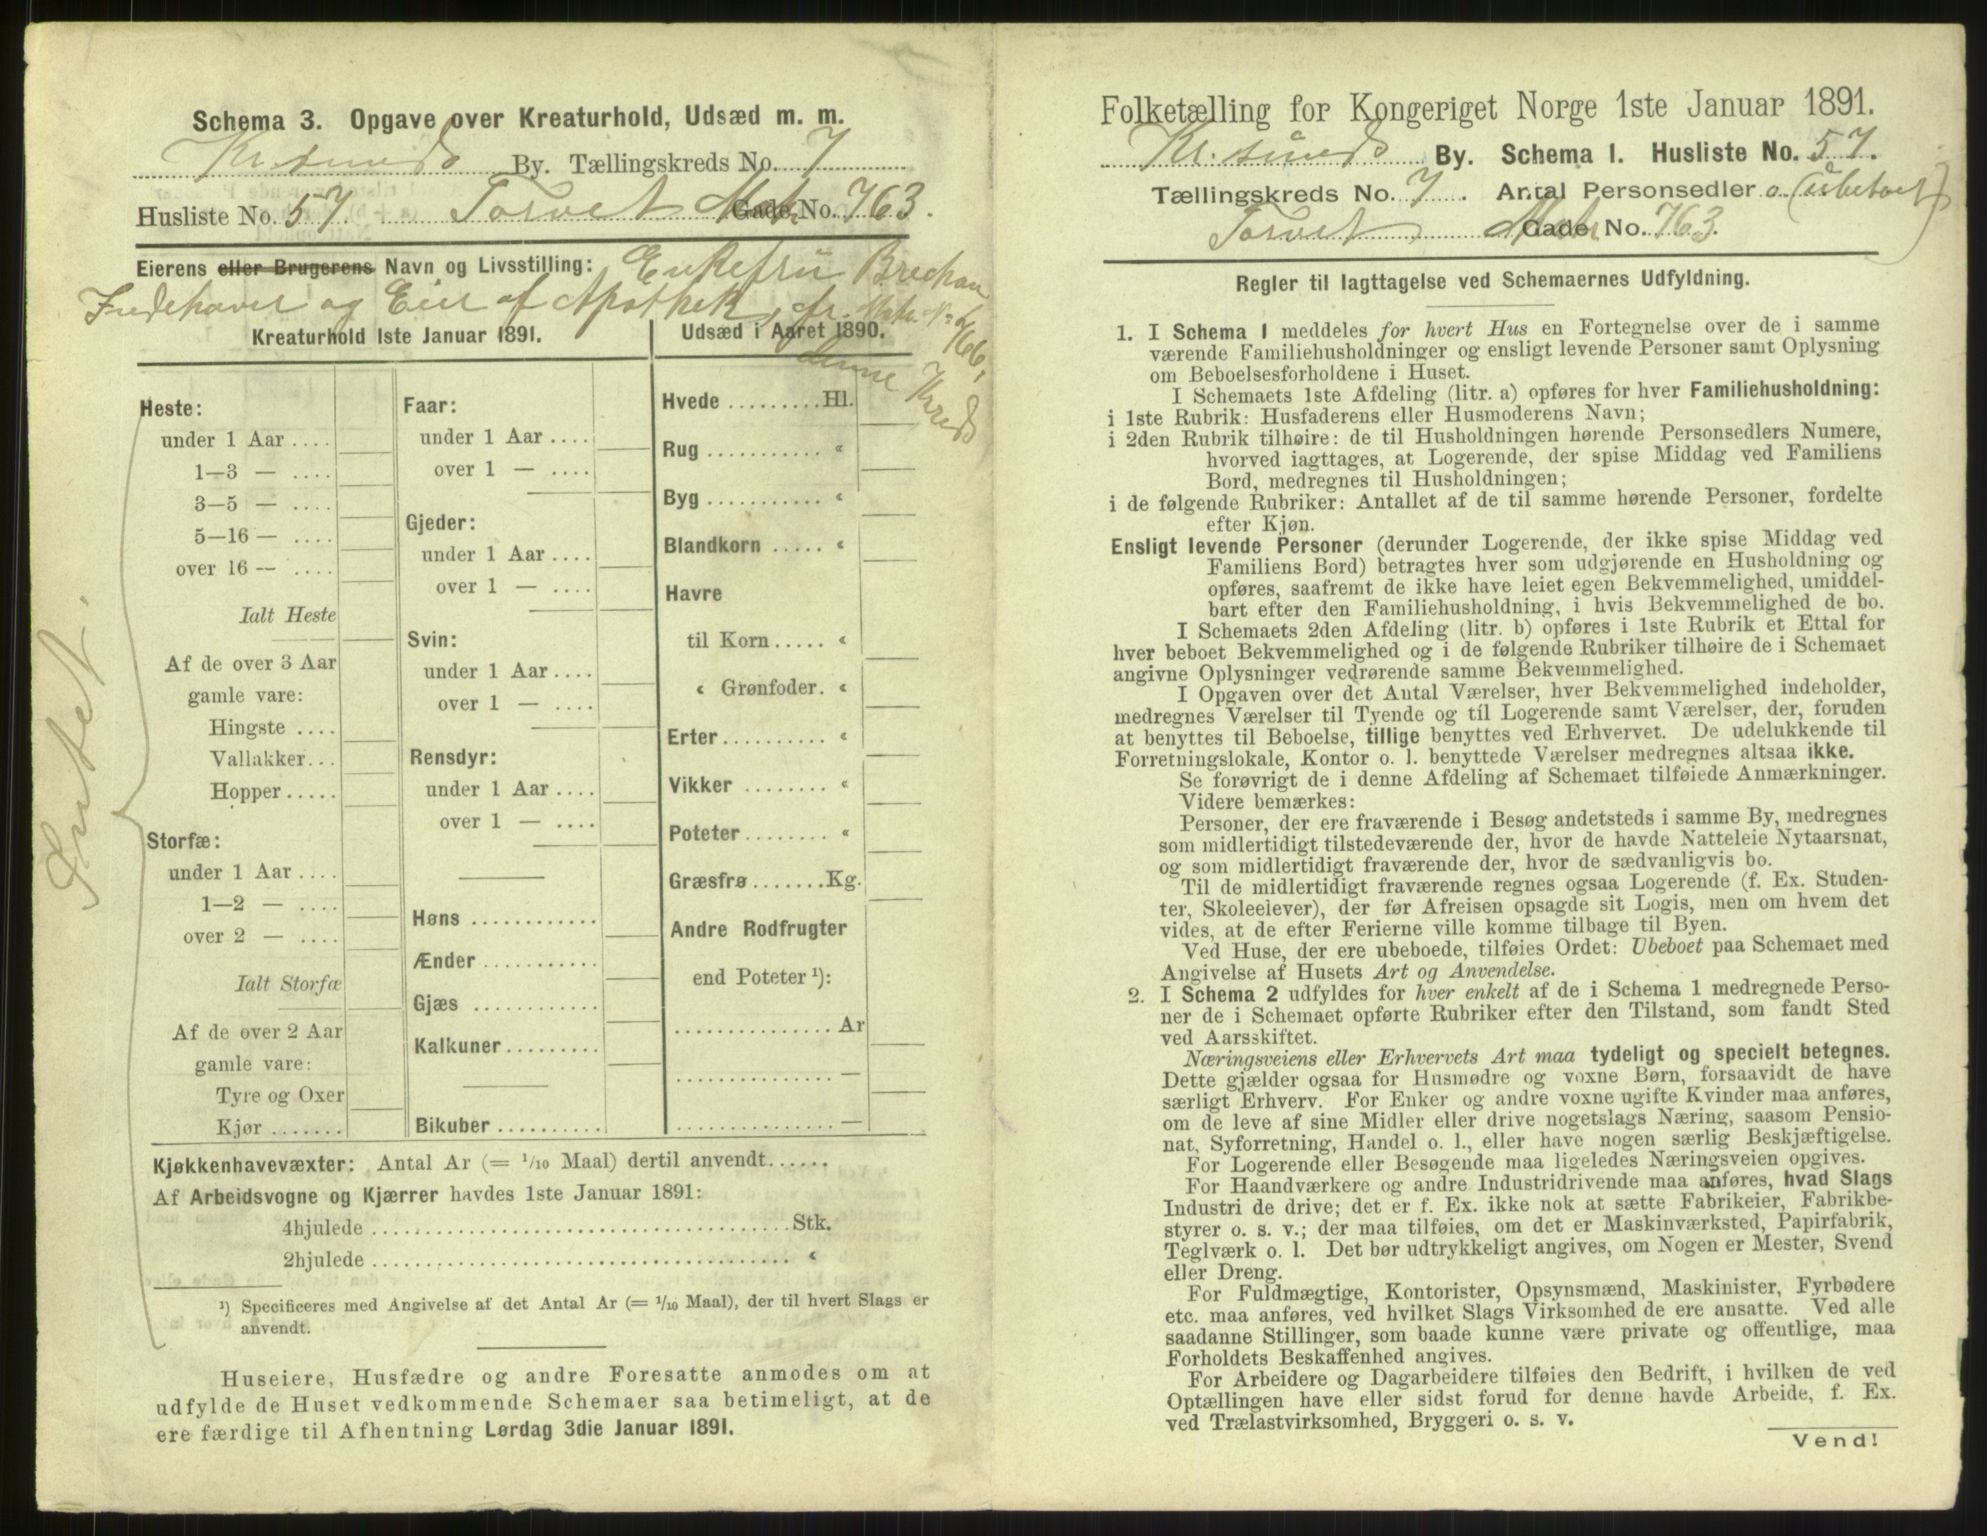 Schema 3. Opgave over Kreaturhold, Udsæd m. m.
Kr.sunds By. Tællingskreds No. 7
Husliste No. 57. Torvet Matr. Gade No. 763.
Eierens eller Brugerens Navn og Livsstilling: Enkefru Brechan
Indehaver og Eier af Apothek, cfr. Matr. No 766,
denne Kreds
Kreaturhold 1ste Januar 1891.
Udsæd i Aaret 1890.
Intet.
Heste:
under 1 Aar ....
1—3 — ....
3—5 — ....
5—16 — ....
over 16 — ....
Ialt Heste
Af de over 3 Aar
gamle vare:
Hingste ....
Vallakker...
Hopper.....
Storfæ:
under 1 Aar ....
1—2 — ....
over 2 — ....
Ialt Storfæ
Af de over 2 Aar
gamle vare:
Tyre og Oxer
Kjør .......
Faar:
under 1 Aar ....
over 1 — ....
Gjeder:
under 1 Aar ....
over 1 — ....
Svin:
under 1 Aar ....
over 1 — ....
Rensdyr:
under 1 Aar ....
over 1 — ....
Høns ............
Ænder ...........
Gjæs ............
Kalkuner.........
Bikuber ..........
Hvede .........Hl.
Rug ........... «
Byg ............ «
Blandkorn ..... «
Havre
til Korn ..... «
« Grønfoder. «
Erter.......... «
Vikker ........ «
Poteter........ «
Græsfrø.......Kg.
Andre Rodfrugter
end Poteter ¹):
............... Ar
............... —
............... —
Kjøkkenhavevæxter: Antal Ar (= 1/10 Maal) dertil anvendt......
Af Arbeidsvogne og Kjærrer havdes 1ste Januar 1891:
4hjulede ........................................Stk.
2hjulede ........................................ «
¹) Specificeres med Angivelse af det Antal Ar (= 1/10 Maal), der til hvert Slags er
anvendt.
Huseiere, Husfædre og andre Foresatte anmodes om at
udfylde de Huset vedkommende Schemaer saa betimeligt, at de
ere færdige til Afhentning Lørdag 3die Januar 1891.
Folketælling for Kongeriget Norge 1ste Januar 1891.
Kr.sunds By. Schema 1. Husliste No. 57.
Tællingskreds No. 7. Antal Personsedler o. (Ubeboet)
Torvet Matr Gade No. 763.
Regler til Iagttagelse ved Schemaernes Udfyldning.
1. I Schema 1 meddeles for hvert Hus en Fortegnelse over de i samme
værende Familiehusholdninger og ensligt levende Personer samt Oplysning
om Beboelsesforholdene i Huset.
I Schemaets 1ste Afdeling (litr. a) opføres for hver Familiehusholdning:
i 1ste Rubrik: Husfaderens eller Husmoderens Navn;
i 2den Rubrik tilhøire: de til Husholdningen hørende Personsedlers Numere,
hvorved iagttages, at Logerende, der spise Middag ved Familiens
Bord, medregnes til Husholdningen;
i de følgende Rubriker: Antallet af de til samme hørende Personer, fordelte
efter Kjøn.
Ensligt levende Personer (derunder Logerende, der ikke spise Middag ved
Familiens Bord) betragtes hver som udgjørende en Husholdning og
opføres, saafremt de ikke have leiet egen Bekvemmelighed, umiddel-
bart efter den Familiehusholdning, i hvis Bekvemmelighed de bo.
I Schemaets 2den Afdeling (litr. b) opføres i 1ste Rubrik et Ettal for
hver beboet Bekvemmelighed og i de følgende Rubriker tilhøire de i Schemaet
angivne Oplysninger vedrørende samme Bekvemmelighed.
I Opgaven over det Antal Værelser, hver Bekvemmelighed indeholder,
medregnes Værelser til Tyende og til Logerende samt Værelser, der, foruden
at benyttes til Beboelse, tillige benyttes ved Erhvervet. De udelukkende til
Forretningslokale, Kontor o. l. benyttede Værelser medregnes altsaa ikke.
Se forøvrigt de i denne Afdeling af Schemaet tilføiede Anmærkninger.
Videre bemærkes:
Personer, der ere fraværende i Besøg andetsteds i samme By, medregnes
som midlertidigt tilstedeværende der, hvor de havde Natteleie Nytaarsnat,
og som midlertidigt fraværende der, hvor de sædvanligvis bo.
Til de midlertidigt fraværende regnes ogsaa Logerende (f. Ex. Studen-
ter, Skoleelever), der før Afreisen opsagde sit Logis, men om hvem det
vides, at de efter Ferierne ville komme tilbage til Byen.
Ved Huse, der ere ubeboede, tilføies Ordet: Ubeboet paa Schemaet med
Angivelse af Husets Art og Anvendelse.
2. I Schema 2 udfyldes for hver enkelt af de i Schema 1 medregnede Perso-
ner de i Schemaet opførte Rubriker efter den Tilstand, som fandt Sted
ved Aarsskiftet.
Næringsveiens eller Erhvervets Art maa tydeligt og specielt betegnes.
Dette gjælder ogsaa for Husmødre og voxne Børn, forsaavidt de have
særligt Erhverv. For Enker og andre voxne ugifte Kvinder maa anføres,
om de leve af sine Midler eller drive nogetslags Næring, saasom Pensio-
nat, Syforretning, Handel o. l., eller have nogen særlig Beskjæftigelse.
For Logerende eller Besøgende maa ligeledes Næringsveien opgives.
For Haandværkere og andre Industridrivende maa anføres, hvad Slags
Industri de drive; det er f. Ex. ikke nok at sætte Fabrikeier, Fabrikbe-
styrer o. s. v.; der maa tilføies, om det er Maskinværksted, Papirfabrik,
Teglværk o. l. Det bør udtrykkeligt angives, om Nogen er Mester, Svend
eller Dreng.
For Fuldmægtige, Kontorister, Opsynsmænd, Maskinister, Fyrbødere
etc. maa anføres, ved hvilket Slags Virksomhed de ere ansatte. Ved alle
saadanne Stillinger, som baade kunne være private og offentlige, maa
Forholdets Beskaffenhed angives.
For Arbeidere og Dagarbeidere tilføies den Bedrift, i hvilken de ved
Optællingen have eller sidst forud for denne havde Arbeide, f. Ex.
ved Trælastvirksomhed, Bryggeri o. s. v.
Vend!